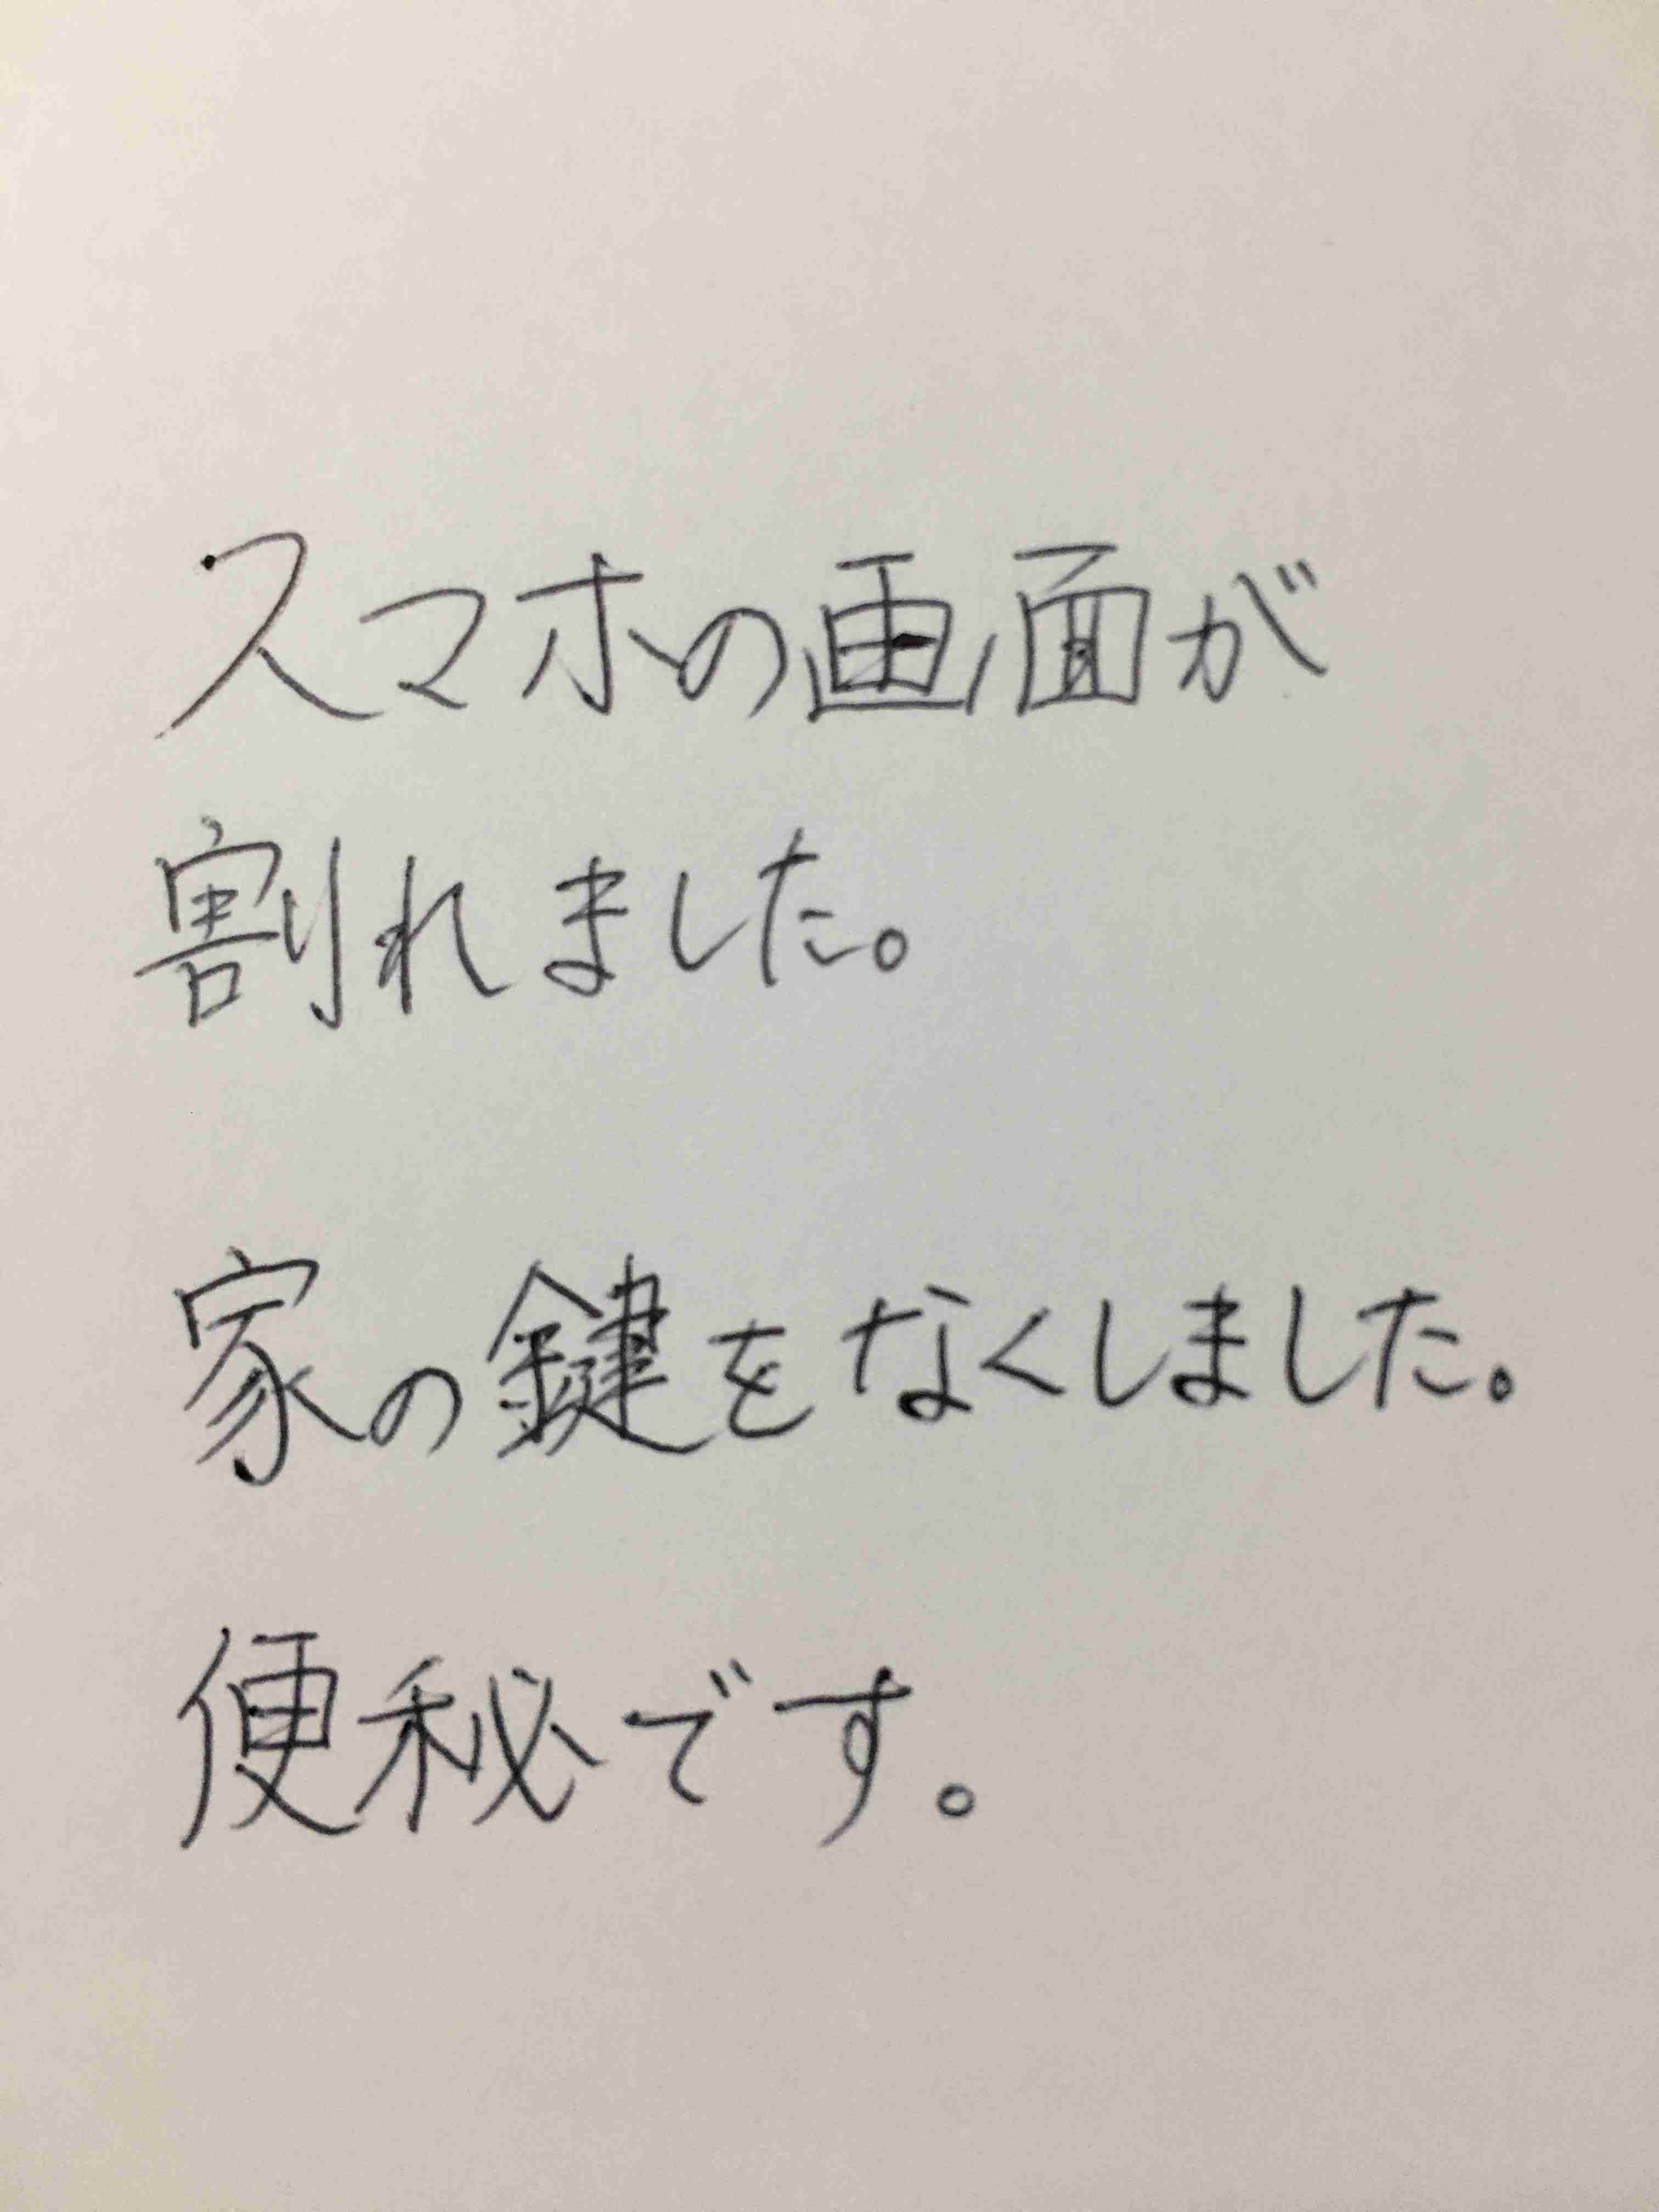 スマホの画面が
割れました。
家の鍵をなくしました。
便秘です。